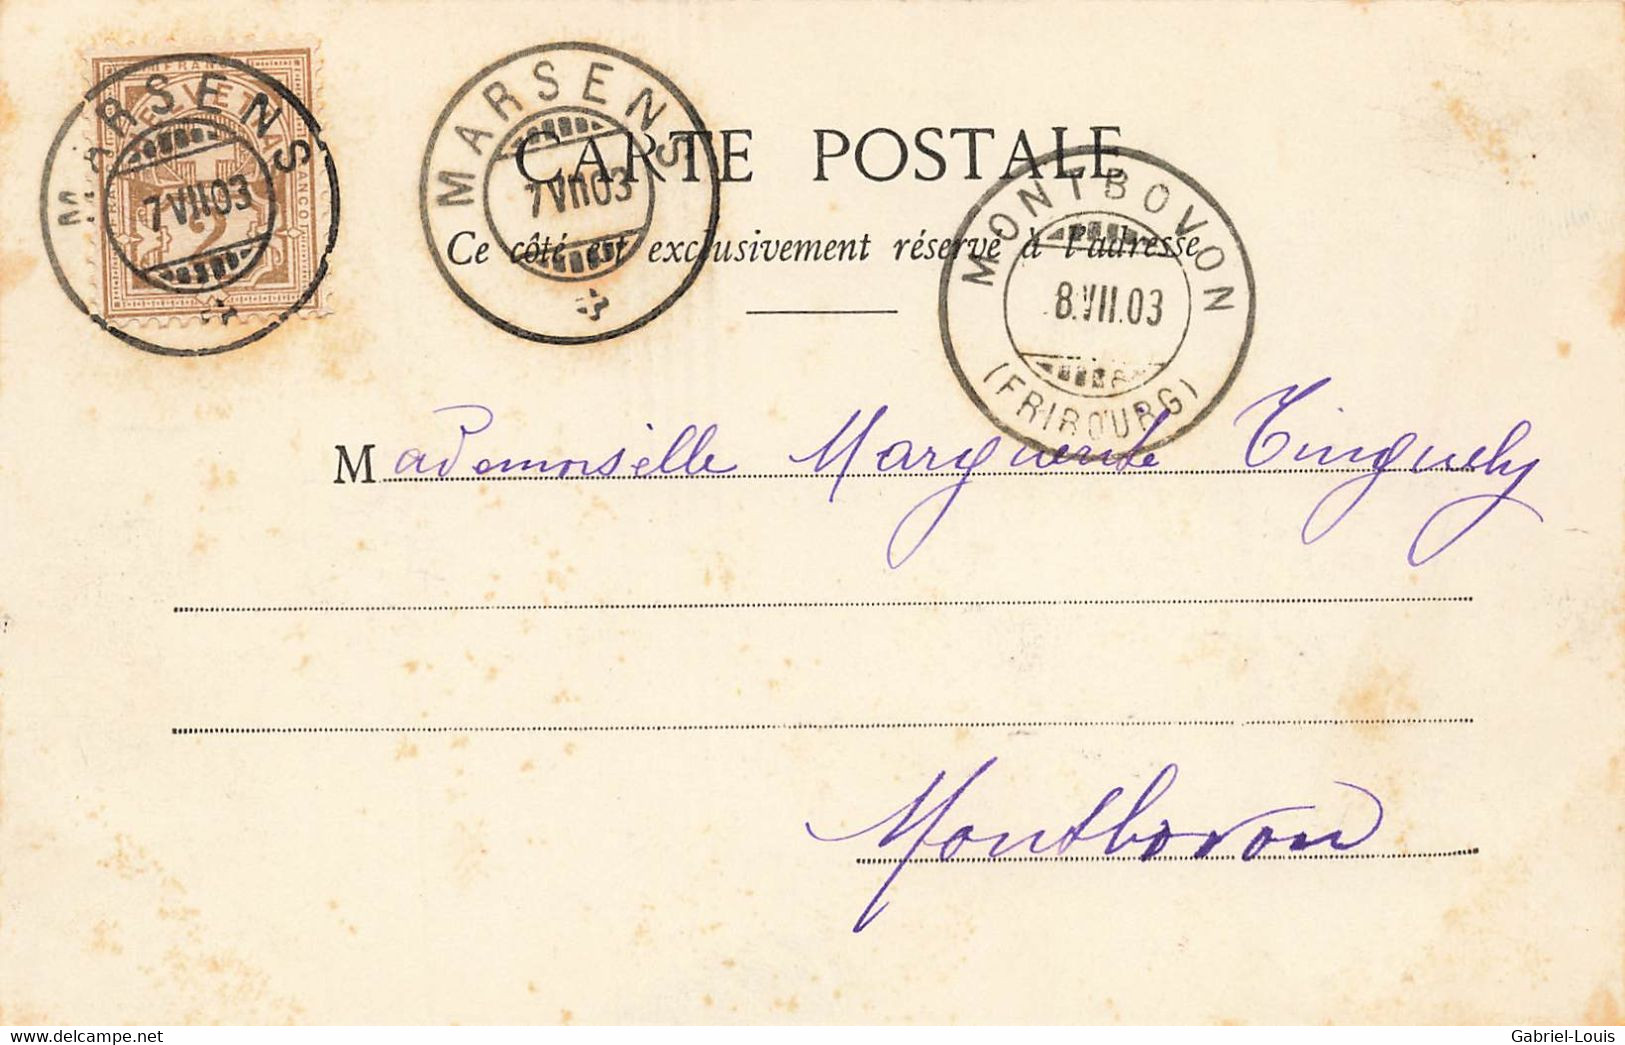 FRANCO
HELVETIA
FRANCO
2
MARSENS
7 VII 03
MARSENS
7 VII 03
CARTE POSTALE
Ce côté est exclusivement réservé à l'adresse
MONTBOVON
8.VII.03
(FRIBOURG)
Mademoiselle Marguerite Tinguely
Montbovon
delcampe.net
Gabriel-Louis